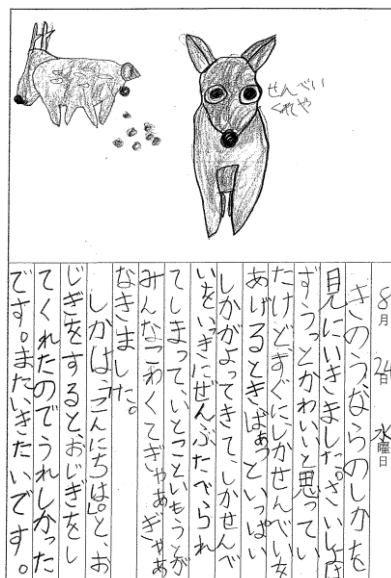 せんべい
くれや
8月24日水曜日
きのう、ならのしかを
見にいきました。さいしょは
ずうっとかわいいと思ってい
たけど、すぐにしかせんべいを
あげるとき、ばあっといっぱい
しかがよってきて、しかせんべ
いをいっきにぜんぶたべられ
てしまって、いとこといもうとが
みんなこわくてぎゃあぎゃあ
なきました。
しかは、「こんにちは。」と、お
じぎをすると、おじぎをし
てくれたのでうれしかった
です。また、いきたいです。